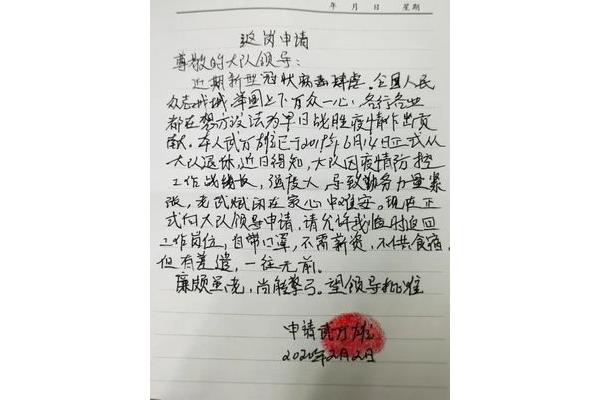 年 月 日 星期
返岗申请
尊敬的大队领导:
近期新型冠状病毒肆虐。全国人民
众志成城,举国上下万众一心,各行各业
都在努力设法为早日战胜疫情作出贡
献。本人武万雄已于2019年6月14日正式从
大队退休,近日得知,大队因疫情防控
工作战线长,强度大,导致勤务力量紧
张,老武赋闲在家心中难安。现在正
式向大队领导申请,请允许我临时返回
工作岗位,自带口罩,不需薪资,不供食宿。
但有差遣,一往无前。
廉颇虽老,尚能擎弓。望领导批准
申请武万雄
2020年2月2日